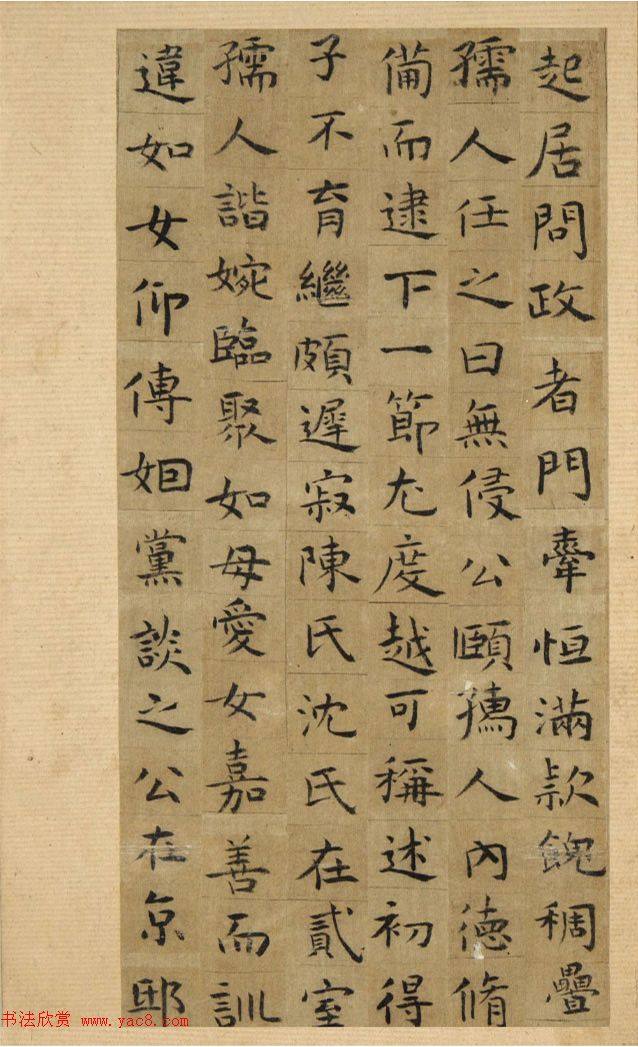 起居問政者門牽恒滿款餽稠疊
孺人任之曰無侵公頤孺人內德脩
備而逮下一節尤度越可稱述初得
子不育繼頗遲寂陳氏沈氏在貳室
孺人諧婉臨聚如母愛女嘉善而訓
違如女仰傅姆黨談之公在京邸
书法欣赏 www.yac8.com